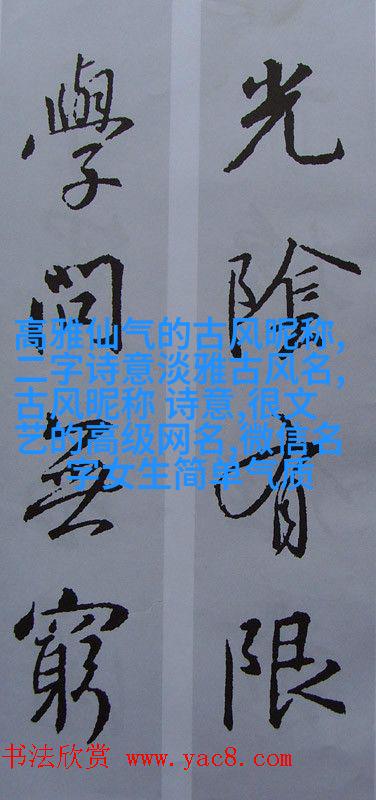 光陰有限
學問無窮
高雅仙气的古风昵称,
二字诗意淡雅古风名,
古风昵称 诗意,很文
艺的高级网名,微信名
字女生简单气质
书法欣赏 www.yac8.com